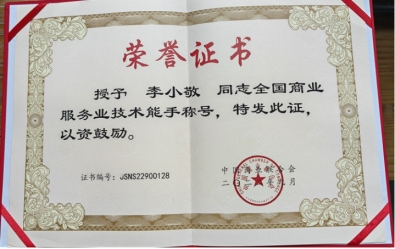 荣誉证书
授予 李小敬 同志全国商业
服务业技术能手称号，特发此证，
以资鼓励。
中国商业联合会
证书编号：JSNS22900128
二〇 月